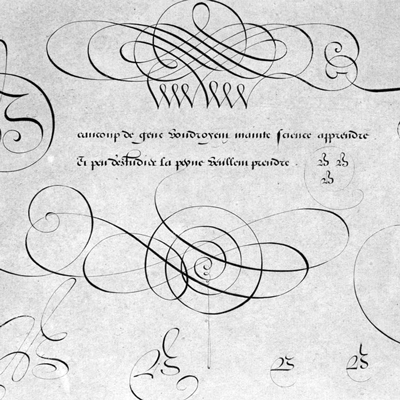 eaucoup de gens voudroyent mainte science apprendre
Et peu destudier la peyne veullent prendre .
B B
B